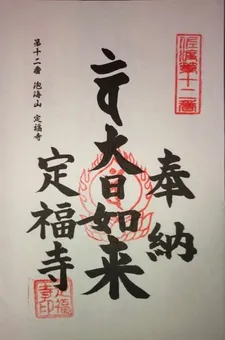 佐渡第十二番
奉納
大日如来
定福寺
定福寺印
第十二番 泡海山 定福寺